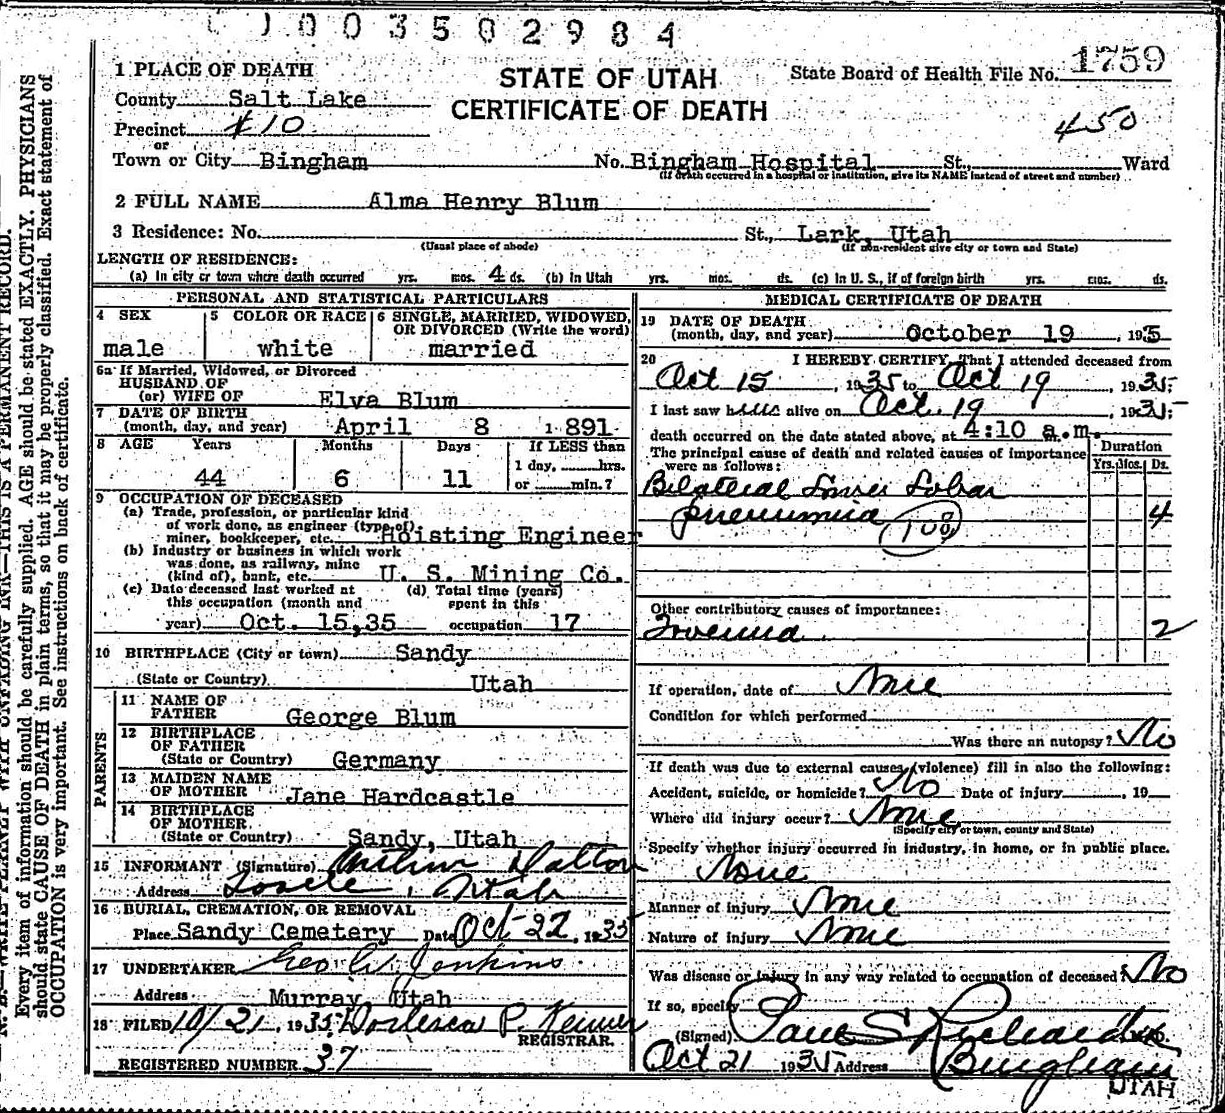 0 0 3 5 0 2 9 8 4
1 PLACE OF DEATH
STATE OF UTAH
CERTIFICATE OF DEATH
State Board of Health File No. 1759
County Salt Lake
450
Precinct #10
or
Town or City Bingham No. Bingham Hospital St., Ward
(If death occurred in a hospital or institution, give its NAME instead of street and number)
2 FULL NAME Alma Henry Blum
3 Residence: No. St., Lark, Utah
(Usual place of abode) (If non-resident give city or town and State)
LENGTH OF RESIDENCE:
(a) In city or town where death occurred yrs. mos. 4 ds. (b) in Utah yrs. mos. ds. (c) in U. S., if of foreign birth yrs. mos. ds.
PERSONAL AND STATISTICAL PARTICULARS
4 SEX
male
5 COLOR OR RACE
white
6 SINGLE, MARRIED, WIDOWED,
OR DIVORCED (Write the word)
married
6a If Married, Widowed, or Divorced
HUSBAND OF
(or) WIFE OF Elva Blum
7 DATE OF BIRTH
(month, day, and year) April 8 1891
8 AGE Years Months Days If LESS than
1 day, hrs.
44 6 11 or min.?
9 OCCUPATION OF DECEASED
(a) Trade, profession, or particular kind
of work done, as engineer (type of)
miner, bookkeeper, etc. Hoisting Engineer
(b) Industry or business in which work
was done, as railway, mine
(kind of), bank, etc. U. S. Mining Co.
(c) Date deceased last worked at
this occupation (month and
year) Oct. 15,35
(d) Total time (years)
spent in this
occupation 17
10 BIRTHPLACE (City or town) Sandy
(State or Country) Utah
PARENTS
11 NAME OF
FATHER George Blum
12 BIRTHPLACE
OF FATHER
(State or Country) Germany
13 MAIDEN NAME
OF MOTHER Jane Hardcastle
14 BIRTHPLACE
OF MOTHER
(State or Country) Sandy, Utah
15 INFORMANT (Signature) Dalton
Address Utah
16 BURIAL, CREMATION, OR REMOVAL
Place Sandy Cemetery Date Oct 22, 1935
17 UNDERTAKER Geo W. Jenkins
Address Murray, Utah
18 FILED 10/21, 1935 P.
REGISTRAR.
REGISTERED NUMBER 37
MEDICAL CERTIFICATE OF DEATH
19 DATE OF DEATH
(month, day, and year) October 19, 1935
20 I HEREBY CERTIFY, That I attended deceased from
Oct 15, 1935 to Oct 19, 1935
I last saw him alive on Oct. 19, 1935
death occurred on the date stated above, at 4:10 a.m.
The principal cause of death and related causes of importance
were as follows:
Duration
Yrs. Mos. Ds.
Bilateral Lower Lobar
pneumonia 108 4
Other contributory causes of importance:
2
If operation, date of None
Condition for which performed
Was there an autopsy? No
If death was due to external causes (violence) fill in also the following:
Accident, suicide, or homicide? No Date of injury , 19
Where did injury occur? None
(Specify city or town, county and State)
Specify whether injury occurred in industry, in home, or in public place.
None
Manner of injury None
Nature of injury None
Was disease or injury in any way related to occupation of deceased? No
If so, specify
(Signed) Paul S. Richards M.D.
Oct 21 1935 Address Bingham
UTAH
N. B.—WRITE PLAINLY WITH UNFADING INK—THIS IS A PERMANENT RECORD.
Every item of information should be carefully supplied. AGE should be stated EXACTLY. PHYSICIANS
should state CAUSE OF DEATH in plain terms, so that it may be properly classified. Exact statement of
OCCUPATION is very important. See instructions on back of certificate.